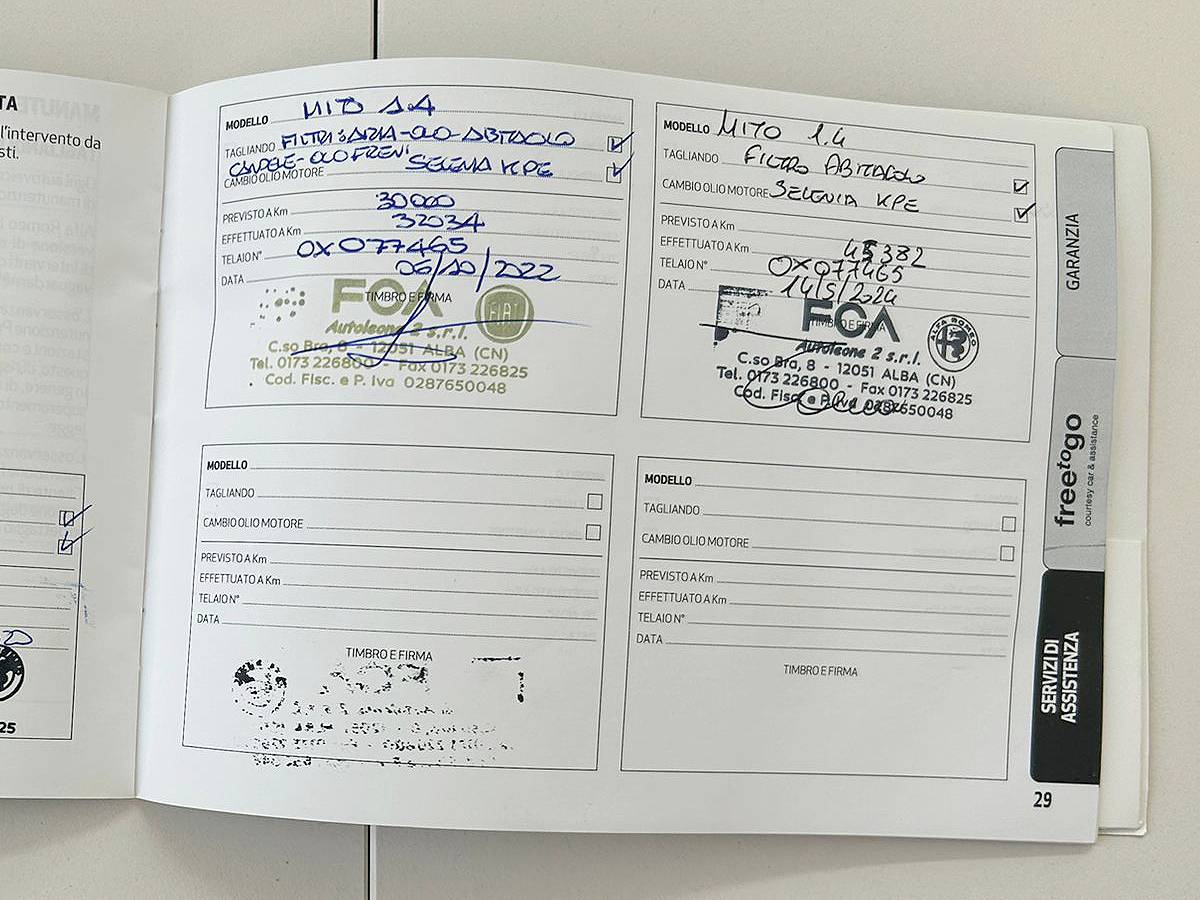 TA
l'intervento da
sti.
20
25
MODELLO MITO 1.4
TAGLIANDO FILTRI: ARIA-OLIO-ABITACOLO
CANDELE-OLIO FRENI SELENIA KPE
CAMBIO OLIO MOTORE
PREVISTO A Km 30000
EFFETTUATO A Km 32034
TELAIO N° 0X077465
DATA 06/10/2022
TIMBRO E FIRMA
FCA
FIAT
Autoleone 2 s.r.l.
C.so Bra, 8 - 12051 ALBA (CN)
Tel. 0173 226800 - Fax 0173 226825
Cod. Fisc. e P. Iva 0287650048
MODELLO MITO 1.4
TAGLIANDO FILTRO ABITACOLO
CAMBIO OLIO MOTORE SELENIA KPE
PREVISTO A Km
EFFETTUATO A Km 45382
TELAIO N° 0X077465
DATA 14/5/2024
TIMBRO E FIRMA
FCA
ALFA ROMEO
Autoleone 2 s.r.l.
C.so Bra, 8 - 12051 ALBA (CN)
Tel. 0173 226800 - Fax 0173 226825
Cod. Fisc. e P. Iva 0287650048
MODELLO
TAGLIANDO
CAMBIO OLIO MOTORE
PREVISTO A Km
EFFETTUATO A Km
TELAIO N°
DATA
TIMBRO E FIRMA
MODELLO
TAGLIANDO
CAMBIO OLIO MOTORE
PREVISTO A Km
EFFETTUATO A Km
TELAIO N°
DATA
TIMBRO E FIRMA
GARANZIA
freetogo
courtesy car & assistance
SERVIZI DI
ASSISTENZA
29